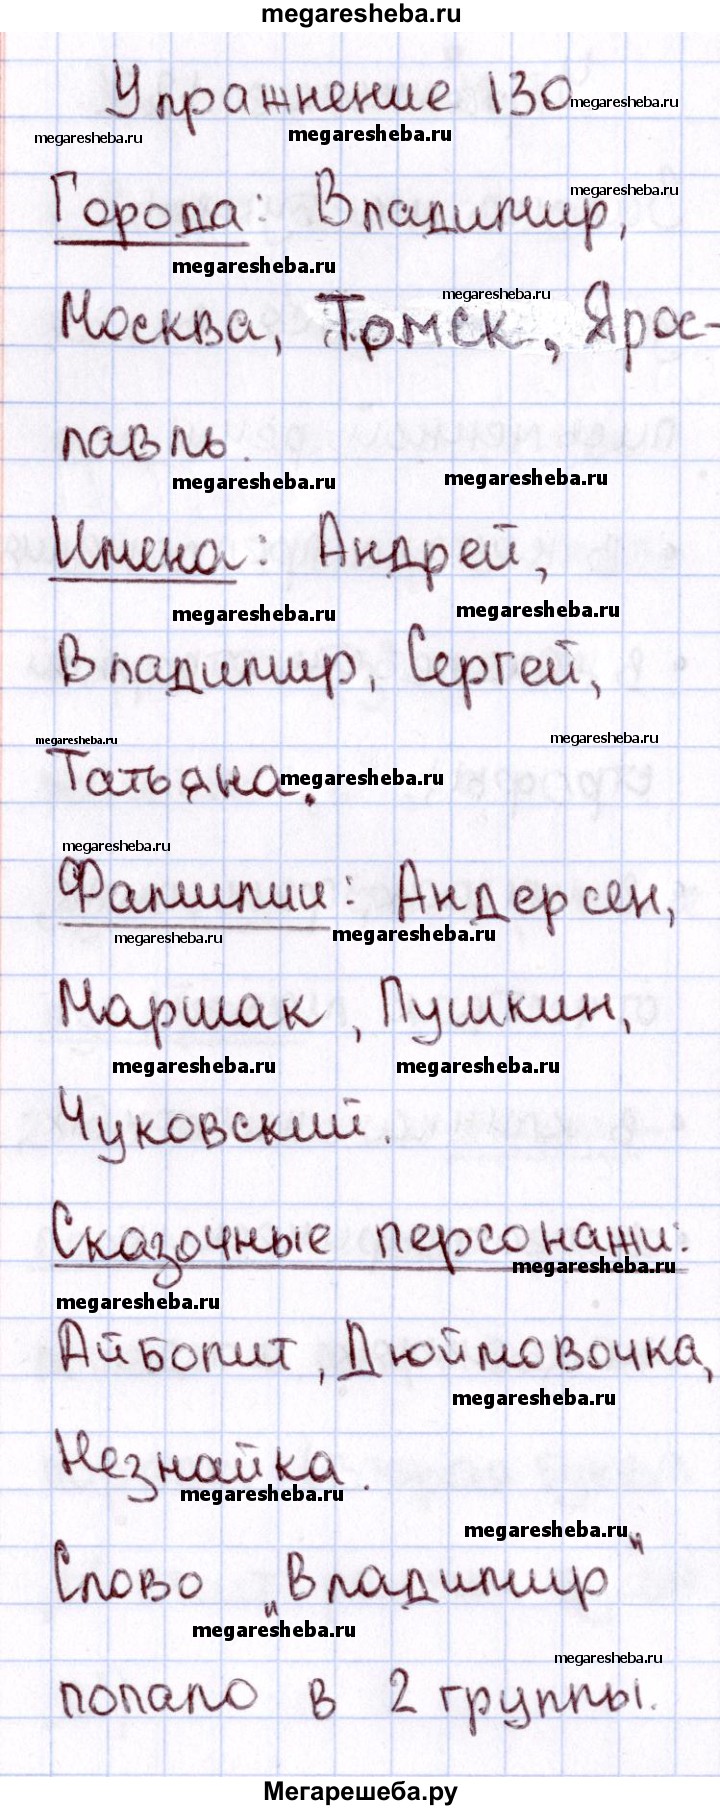 megaresheba.ru
Упражнение 130
megaresheba.ru
megaresheba.ru
megaresheba.ru
megaresheba.ru
Города: Владимир,
megaresheba.ru
megaresheba.ru
Москва, Томск, Ярос-
лавль.
megaresheba.ru
megaresheba.ru
Имена: Андрей,
megaresheba.ru
megaresheba.ru
Владимир, Сергей,
megaresheba.ru
megaresheba.ru
Татьяна.
megaresheba.ru
megaresheba.ru
Фамилии: Андерсен,
megaresheba.ru
megaresheba.ru
Маршак, Пушкин,
megaresheba.ru
megaresheba.ru
Чуковский.
Сказочные персонажи:
megaresheba.ru
megaresheba.ru
Айболит, Дюймовочка,
megaresheba.ru
Незнайка.
megaresheba.ru
megaresheba.ru
Слово „Владимир"
megaresheba.ru
megaresheba.ru
попало в 2 группы.
Мегарешеба.ру